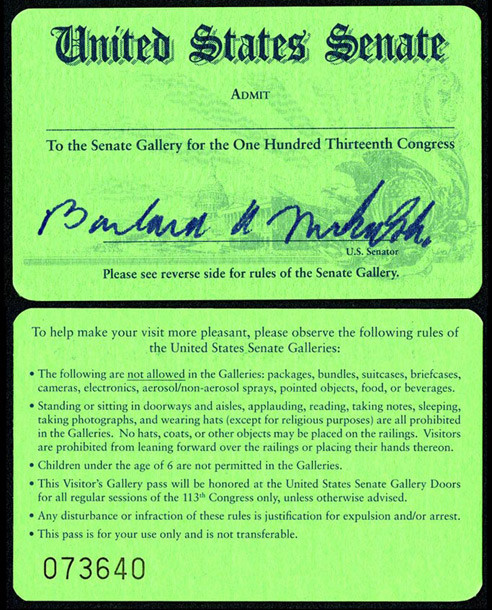 United States Senate
ADMIT
To the Senate Gallery for the One Hundred Thirteenth Congress
Barbara A Mikulski
U.S. Senator
Please see reverse side for rules of the Senate Gallery.
To help make your visit more pleasant, please observe the following rules of
the United States Senate Galleries:
• The following are not allowed in the Galleries: packages, bundles, suitcases, briefcases,
cameras, electronics, aerosol/non-aerosol sprays, pointed objects, food, or beverages.
• Standing or sitting in doorways and aisles, applauding, reading, taking notes, sleeping,
taking photographs, and wearing hats (except for religious purposes) are all prohibited
in the Galleries. No hats, coats, or other objects may be placed on the railings. Visitors
are prohibited from leaning forward over the railings or placing their hands thereon.
• Children under the age of 6 are not permitted in the Galleries.
• This Visitor's Gallery pass will be honored at the United States Senate Gallery Doors
for all regular sessions of the 113th Congress only, unless otherwise advised.
• Any disturbance or infraction of these rules is justification for expulsion and/or arrest.
• This pass is for your use only and is not transferable.
073640